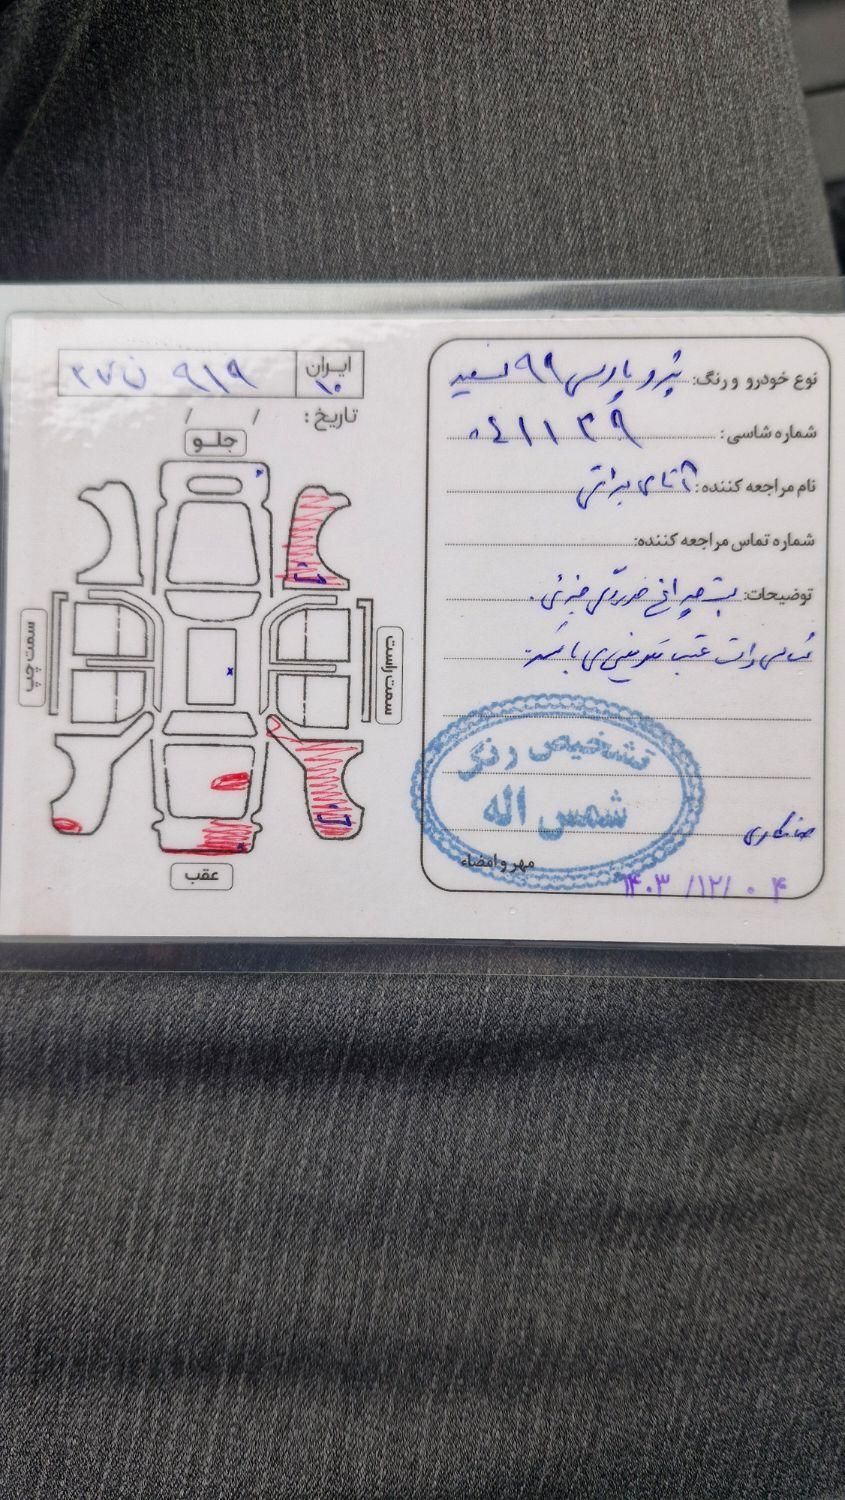 نوع خودرو و رنگ: پژو پارس ۹۹ سفید
شماره شاسی:
نام مراجعه کننده: آقای براتی
شماره تماس مراجعه کننده:
توضیحات: پشت چراغ خوردگی جزئی.
عقب تعویض می باشد.
تشخیص رنگ
شمس اله
صافکاری
مهر و امضاء
۱۴۰۳/۱۲/۰۴
ایران
۱۰
۹۱۹ ن ۲۷
تاریخ: / /
جلو
سمت راست
سمت چپ
عقب